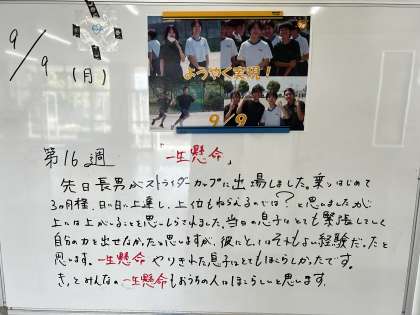 9/9(月)
ようやく実現!
9/9
第16週 「一生懸命」
先日長男がストライダーカップに出場しました。乗りはじめて
3カ月程、日に日に上達し、上位もねらえるのでは?と思いましたが
上には上がいることを思いしらされました。当日の息子はとても緊張していて
自分の力を出せなかったと思いますが、彼にとってはそれもよい経験だったと
思います。一生懸命やりきれた息子はとてもほこらしかったです。
きっとみんなの一生懸命もおうちの人はほこらしいと思います。